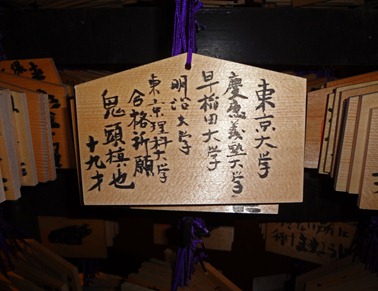 東京大学
慶應義塾大学
早稲田大学
明治大学
東京理科大学
合格祈願
鬼頭槙也
十九才